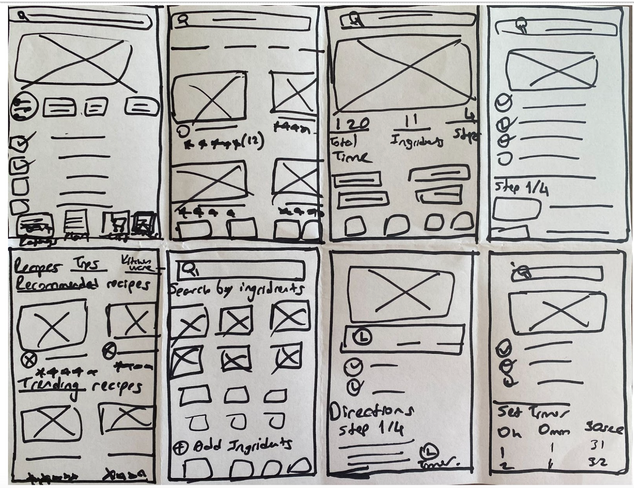 (12)
120
Total
Time
11
Ingridents
4
Step
Step 1/4
Recipes Tips Kitchen
ware
Recommended recipes
Trending recipes
Search by ingridients
Add Ingridients
Directions
step 1/4
Timer.
Set Timer
0h 0min 30sec
1 1 31
2 1 32